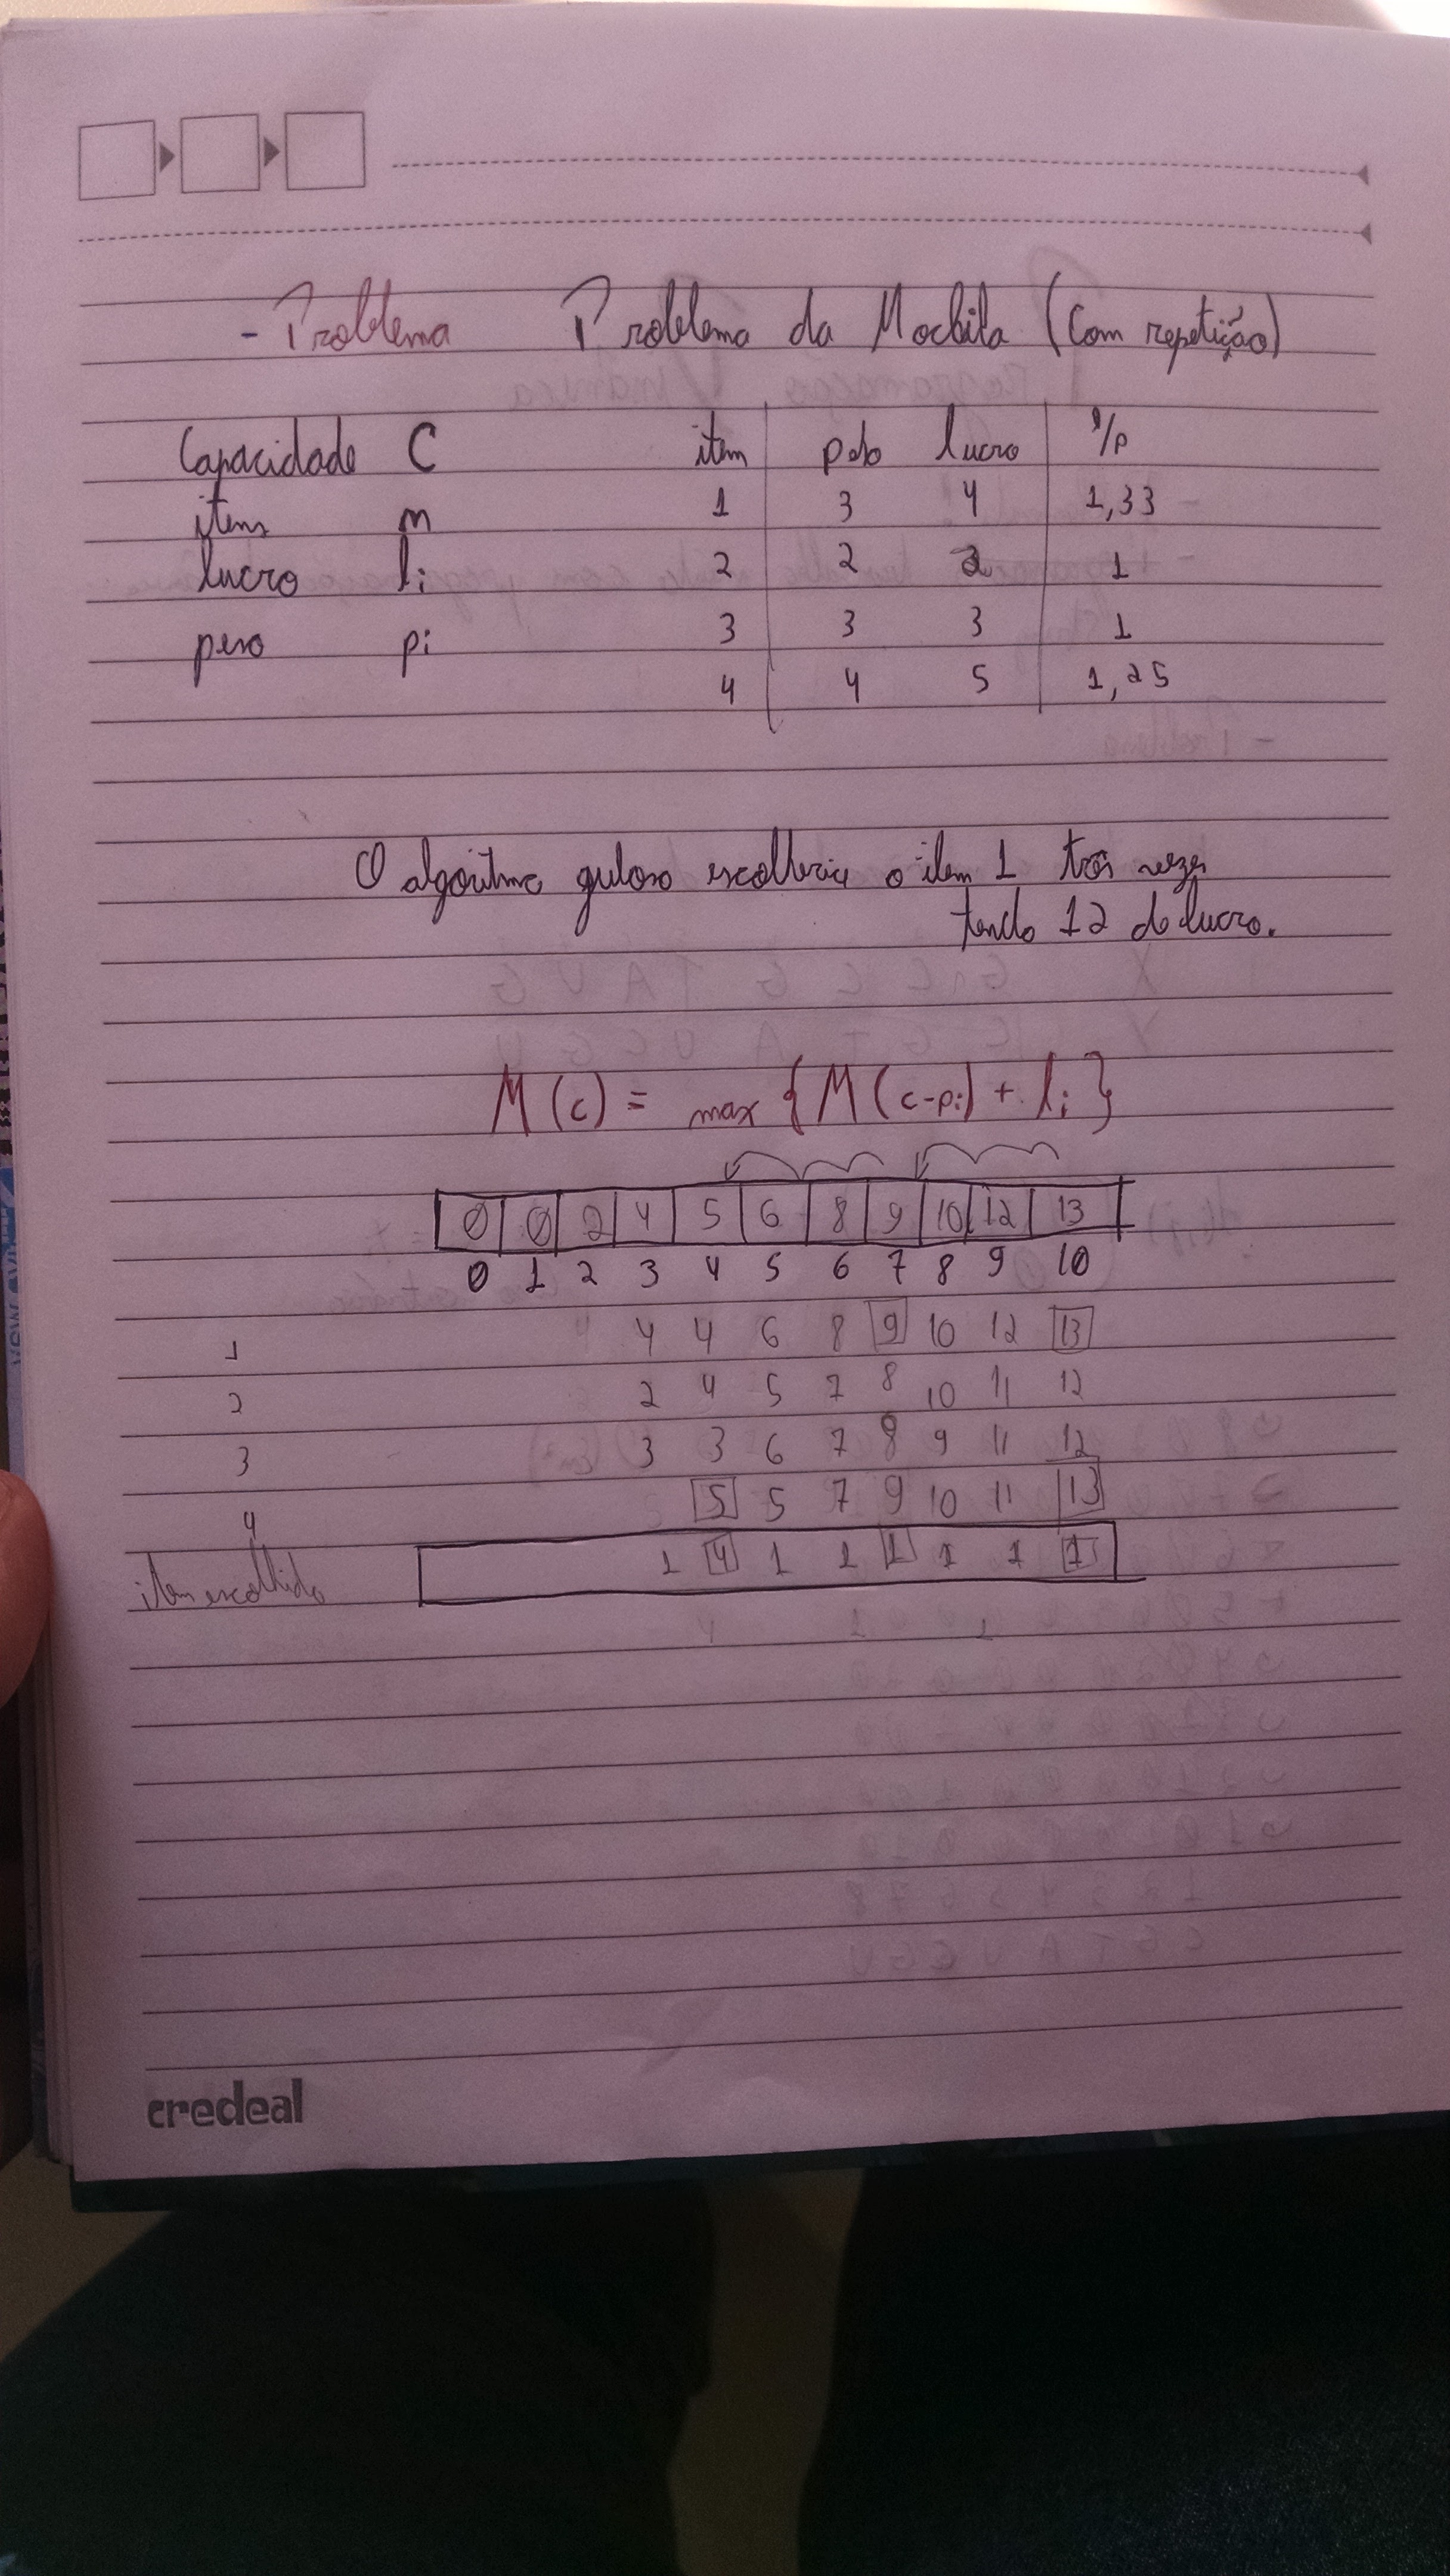 - Problema Problema da Mochila (Com repetição)
Capacidade C item peso lucro l/p
itens n 1 3 4 1,33
lucro li 2 2 2 1
peso pi 3 3 3 1
4 4 5 1,25
O algoritmo guloso escolheria o item 1 três vezes
tendo 12 de lucro.
M(c) = max {M(c-pi) + li}
0 0 2 4 5 6 8 9 10 12 13
0 1 2 3 4 5 6 7 8 9 10
1 4 4 6 8 9 10 12 13
2 2 4 5 7 8 10 11 12
3 3 3 6 7 8 9 11 12
4 5 5 7 9 10 11 13
item escolhido 1 4 1 1 1 1 1 1
credeal